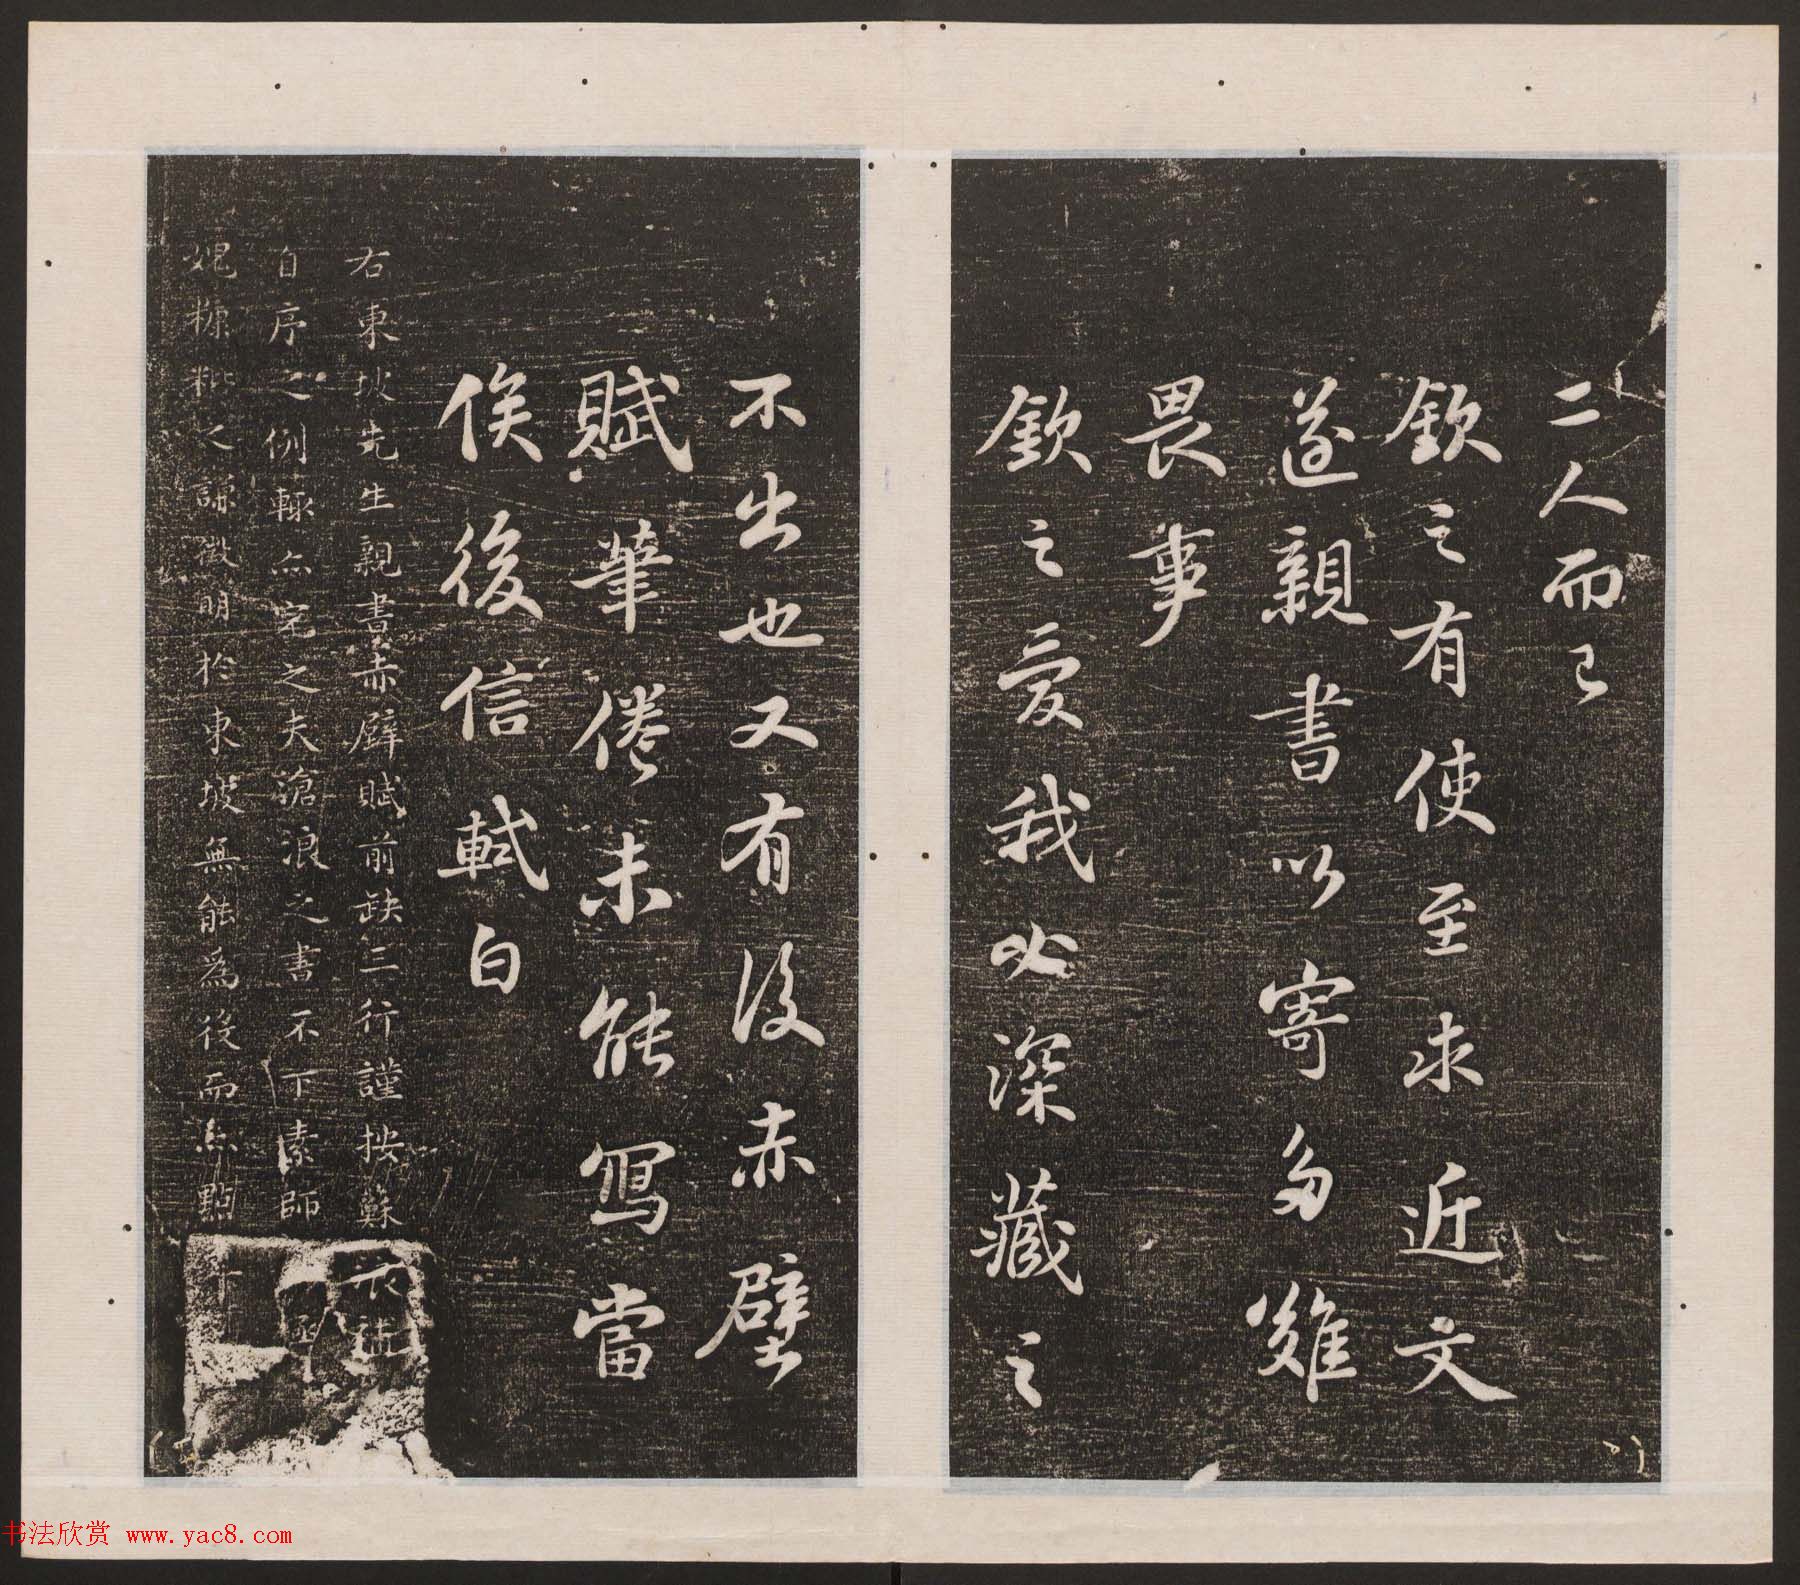 二人而已
欽之有使至求近文
遂親書以寄多難
畏事
欽之愛我必深藏之
不出也又有後赤壁
賦筆倦未能寫當
俟後信軾白
右東坡先生親書赤壁賦前缺三行謹按蘇
自序之例輒亦完之夫滄浪之書不下素師
媿糠粃之謙徵明於東坡無能為役而亦點
书法欣赏 www.yac8.com